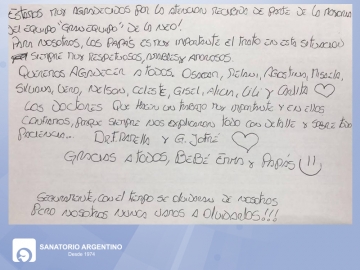 Estamos muy agradecidos por la atención recibida de parte de la
del equipo "gran equipo" de la Neo!
Para nosotros, los papás es muy importante el trato en esta situación
siempre muy respetuosos, amables y amorosos.
Queremos agradecer a todos. Osman, Melani, Agostina, Micaela,
Silvana, Vero, Nelson, Celeste, Gisel, Alicia, Lili y Carlita
Los Doctores que hacen un trabajo muy importante y en ellos
confiamos, porque siempre nos explicaron todo con detalle y sobre todo
paciencia... Dr. Frapella y G. Jofré
Gracias a todos, Bebé Emma y Papás
Seguramente, con el tiempo se olvidaran de nosotros
Pero nosotros nunca vamos a olvidarlos!!!
SANATORIO ARGENTINO
Desde 1974